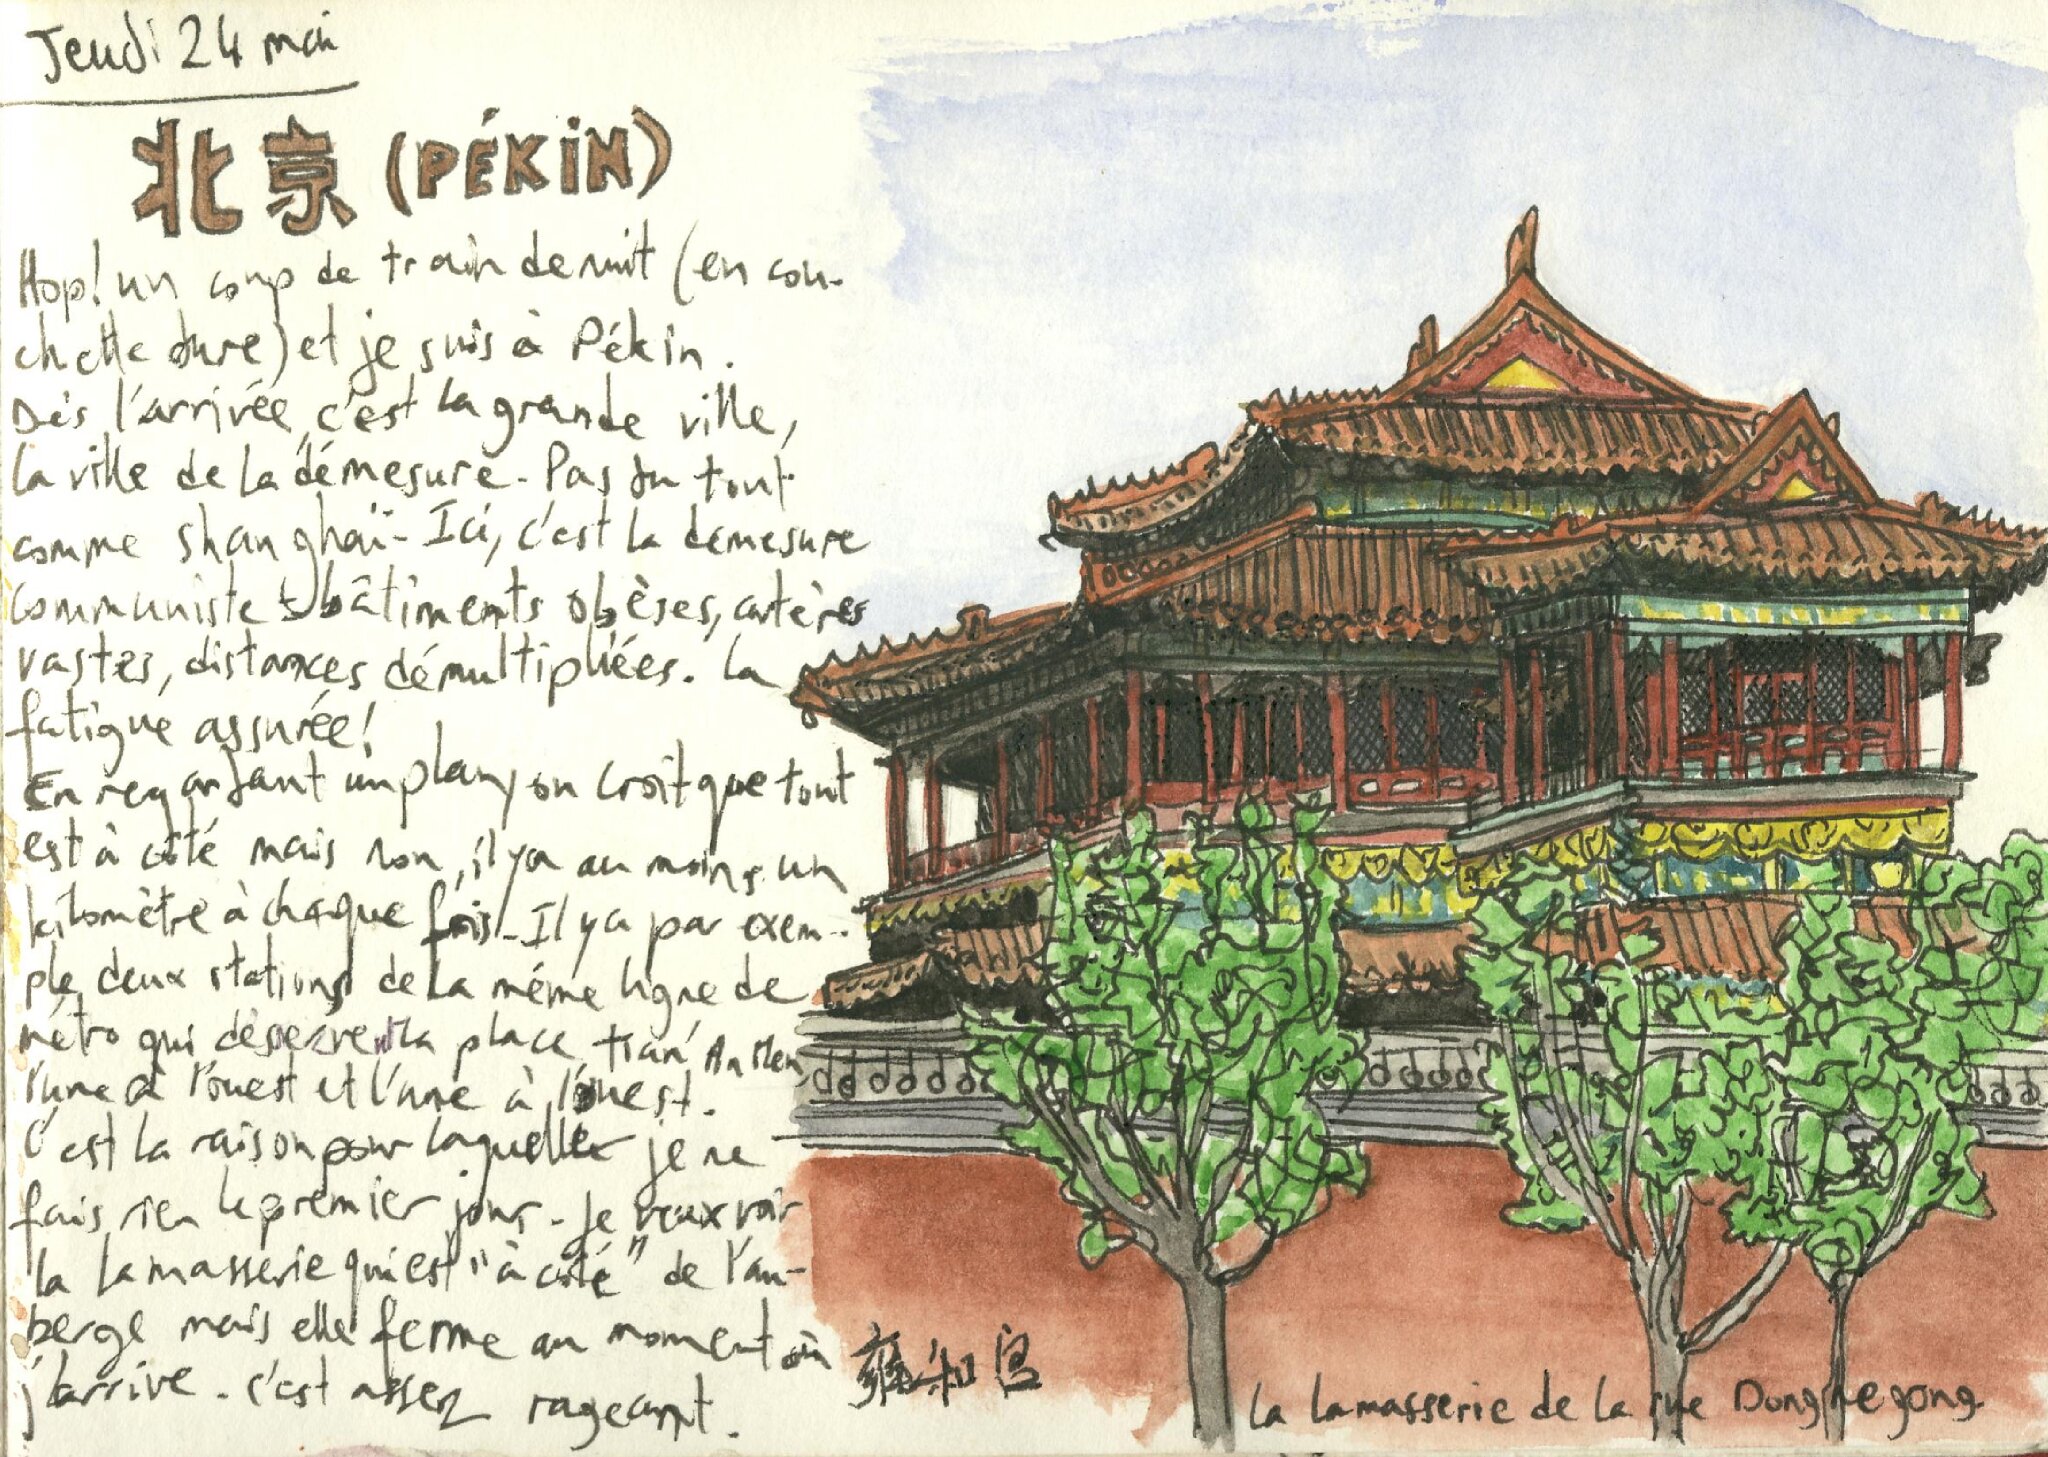 Jeudi 24 mai
北京 (PÉKIN)
Hop! un coup de train de nuit (en cou-
chette dure) et je suis à Pékin.
Dès l'arrivée, c'est la grande ville,
la ville de la démesure. Pas du tout
comme Shanghaï. Ici, c'est la démesure
communiste : bâtiments obèses, artères
vastes, distances démultipliées. La
fatigue assurée!
En regardant un plan, on croit que tout
est à côté mais non, il y a au moins un
kilomètre à chaque fois. Il y a par exem-
ple deux stations de la même ligne de
métro qui desservent la place Tian' An Men,
l'une à l'ouest et l'une à l'ouest.
C'est la raison pour laquelle je ne
fais rien le premier jour. Je veux voir
la lamasserie qui est "à côté" de l'au-
berge mais elle ferme au moment où
j'arrive. C'est assez rageant.
雍和宫
La lamasserie de la rue Donghegong